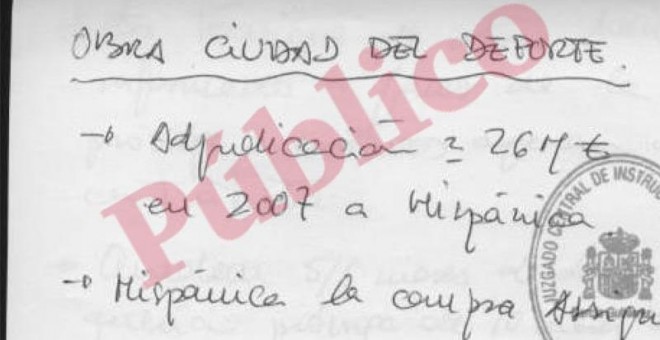 OBRA CIUDAD DEL DEPORTE.
→ Adjudicación ≃ 26 M €
en 2007 a Hispánica
→ Hispánica la compra
Público
JUZGADO CENTRAL DE INSTRUC